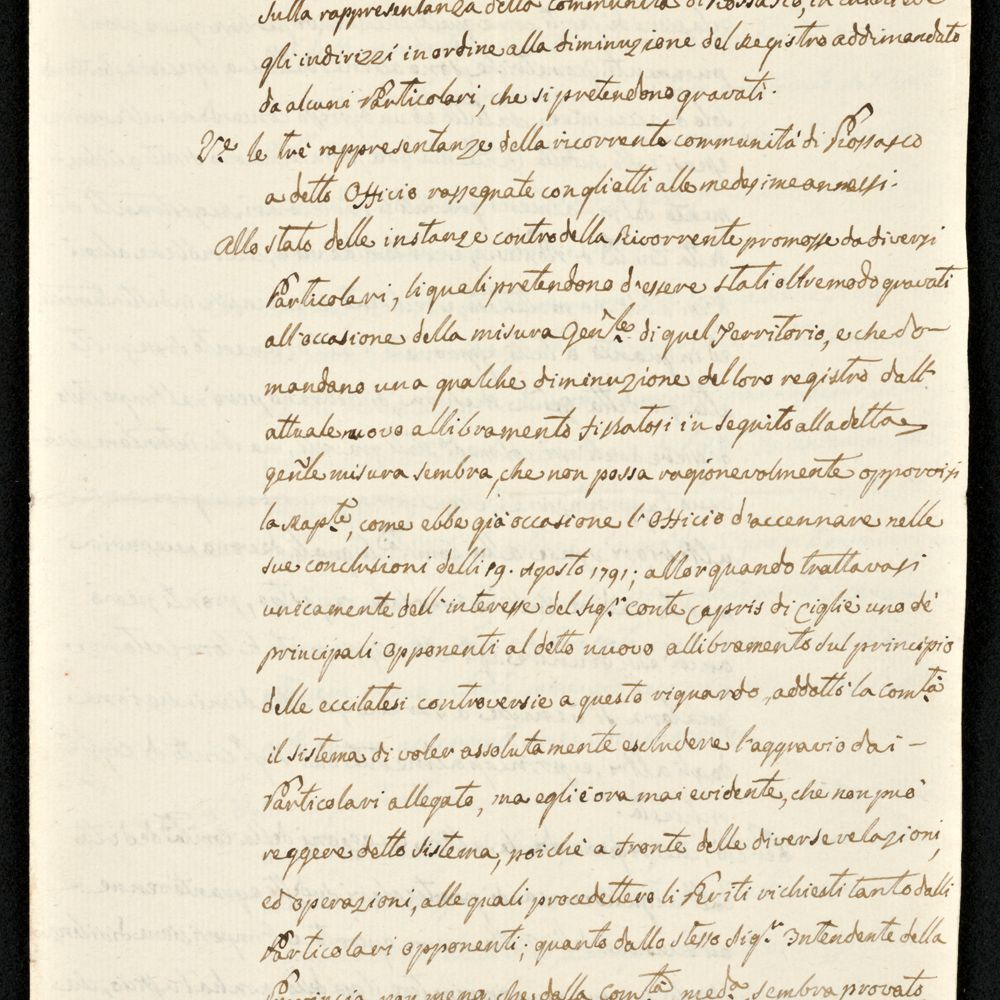 sulla rappresentanza della communità di Rossasco, in
gli indirizzi in ordine alla diminuzione del Registro addimandato
da alcuni Particolari, che si pretendono gravati.
V.e le trè rappresentanze della ricorrente communità di Rossasco
a detto Officio rassegnate con gli atti alle medesime annessi.
Allo stato delle instanze contro della Ricorrente promosse da diversi
Particolari, li quali pretendono d'essere stati oltremodo gravati
all'occasione della misura Gen.le di quel Territorio, e che do-
mandano una qualche diminuzione del loro registro dall'
attuale nuovo allibramento fissatosi in seguito alla detta
gen.le misura sembra, che non possa ragionevolmente opporvisi
la Rap.te, come ebbe già occasione l'Officio d'accennare nelle
sue conclusioni delli 19. Agosto 1791; allor quando trattavasi
unicamente dell'interesse del Sig.r Conte Capris di Cigliè uno de'
principali opponenti al detto nuovo allibramento sul principio
delle eccitatesi controversie a questo riguardo, addottò la Com.tà
il sistema di voler assolutamente escludere l'aggravio dai -
Particolari allegato, ma egli è ora mai evidente, che non può
reggere detto sistema, poichè a fronte delle diverse relazioni,
ed operazioni, alle quali procedettero li Periti richiesti tanto dalli
Particolari opponenti; quanto dallo stesso Sig.r Intendente della
Provincia, non meno, che dalla Com.tà med.a sembra provato